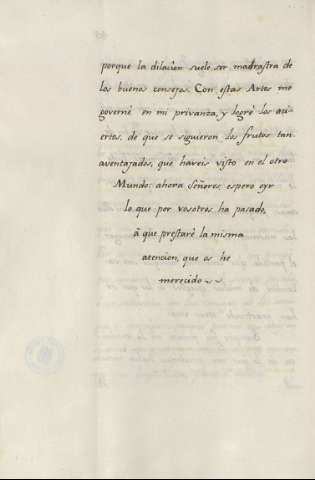 porque la dilacion suele ser madrastra de
los buenos consejos. Con estas Artes me
governé en mi privanza, y logré los aci-
ertos, de que se siguieron los frutos tan
aventajados, que haveis visto en el otro
Mundo: ahora Señores, espero oyr
lo que por vosotros ha pasado,
à que prestaré la misma
atencion, que os he
merecido